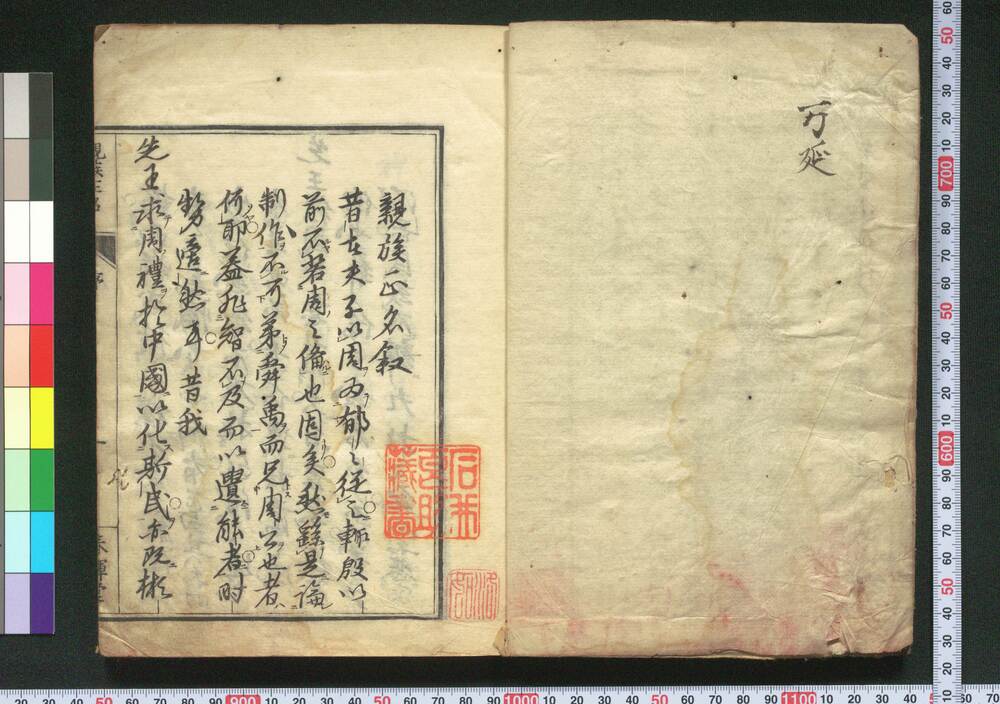 万延
親族正名叙
昔在夫子以周為郁〻從之輙殷以
前不若周之備也固矣然繇是論
制作不可弟舜禹而兄周公也者
何耶蓋非智不及而以遺能者時
勢適然耳昔我
先王求周禮於中國以化斯民亦既彬
親族正名
序
一